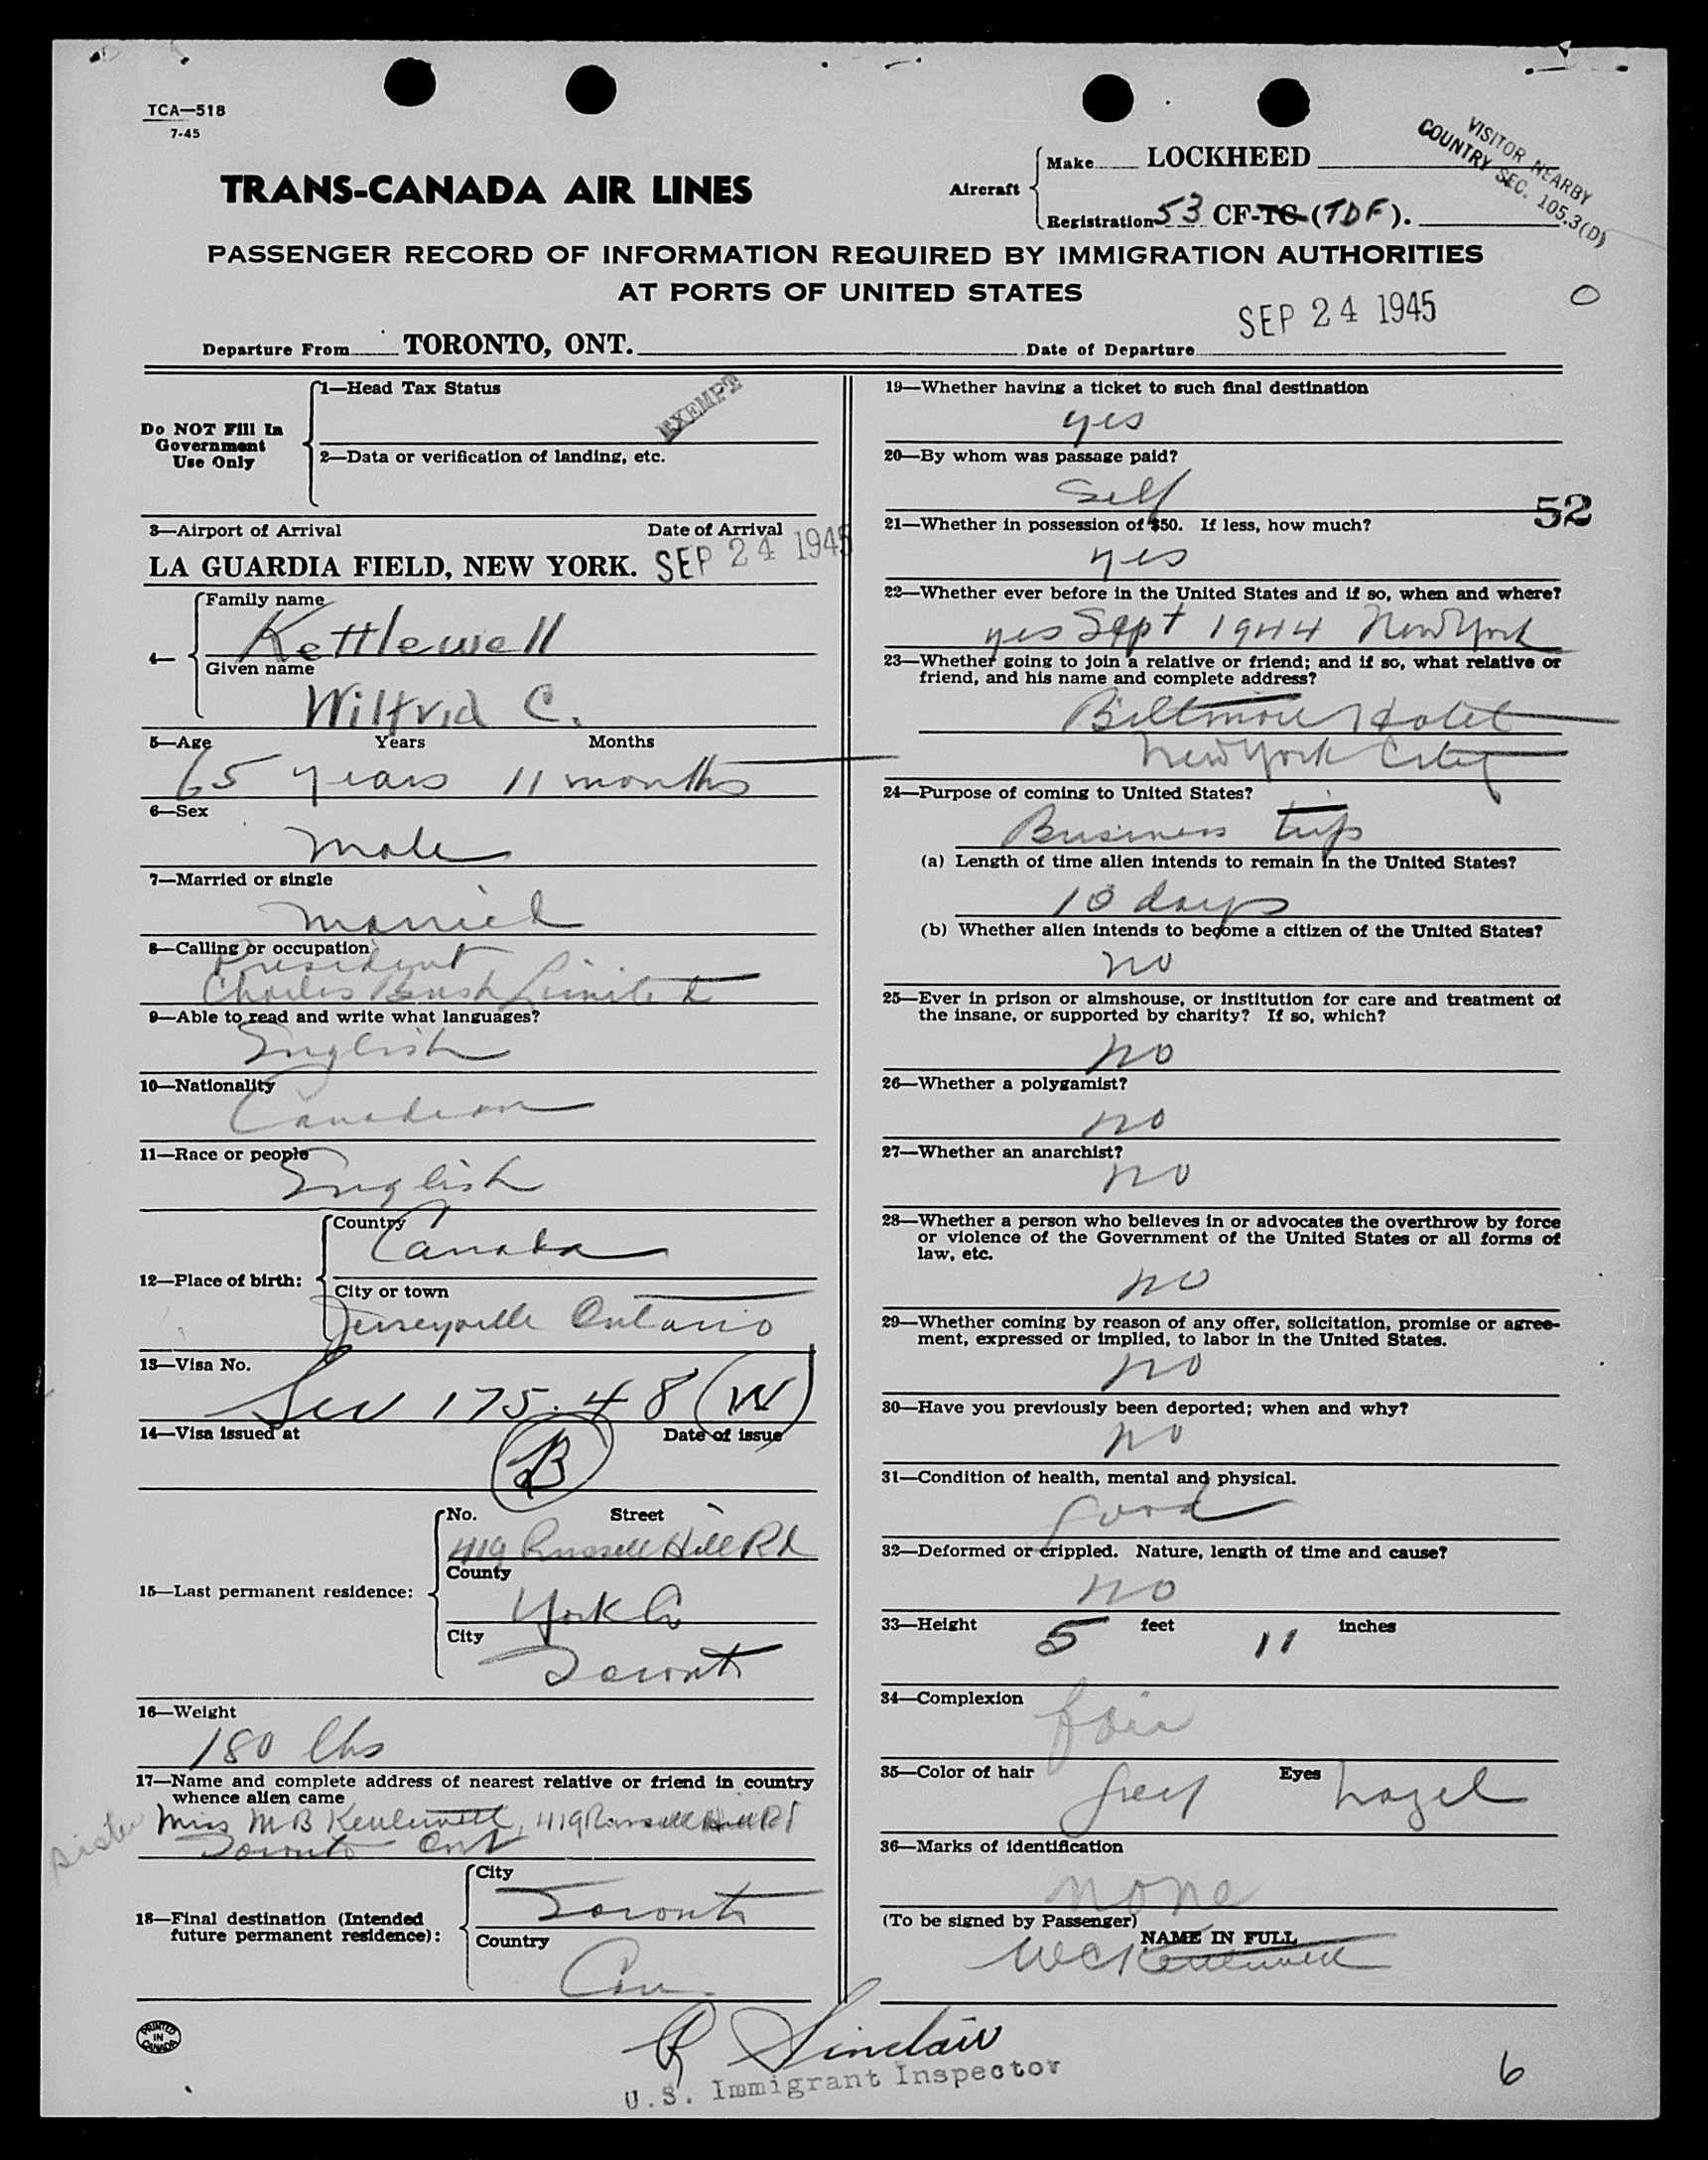 TCA—518
7-45
VISITOR NEARBY
COUNTRY SEC. 105.3(D)
TRANS-CANADA AIR LINES
Aircraft
Make LOCKHEED
Registration 53 CF-TC-(TDF).
PASSENGER RECORD OF INFORMATION REQUIRED BY IMMIGRATION AUTHORITIES
AT PORTS OF UNITED STATES
O
Departure From TORONTO, ONT. Date of Departure SEP 24 1945
Do NOT Fill In
Government
Use Only
1—Head Tax Status
EXEMPT
2—Data or verification of landing, etc.
3—Airport of Arrival Date of Arrival
LA GUARDIA FIELD, NEW YORK. SEP 24 1945
4—
Family name
Kettlewell
Given name
Wilfrid C.
5—Age Years Months
65 years 11 months
6—Sex
male
7—Married or single
married
8—Calling or occupation
President
Charles Bush Limited
9—Able to read and write what languages?
English
10—Nationality
Canadian
11—Race or people
English
12—Place of birth:
Country
Canada
City or town
Jerseyville Ontario
13—Visa No.
Sec 175.48 (W)
14—Visa issued at Date of issue
B
15—Last permanent residence:
No. Street
419 Russell Hill Rd
County
York Co
City
Toronto
16—Weight
180 lbs
17—Name and complete address of nearest relative or friend in country
whence alien came
sister Miss M B Kettlewell, 419 Russell Hill Rd
Toronto Ont
18—Final destination (Intended
future permanent residence):
City
Toronto
Country
Can
19—Whether having a ticket to such final destination
yes
20—By whom was passage paid?
Self
52
21—Whether in possession of $50. If less, how much?
yes
22—Whether ever before in the United States and if so, when and where?
yes Sept 1944 New York
23—Whether going to join a relative or friend; and if so, what relative or
friend, and his name and complete address?
Biltmore Hotel
New York City
24—Purpose of coming to United States?
Business trip
(a) Length of time alien intends to remain in the United States?
10 days
(b) Whether alien intends to become a citizen of the United States?
no
25—Ever in prison or almshouse, or institution for care and treatment of
the insane, or supported by charity? If so, which?
no
26—Whether a polygamist?
no
27—Whether an anarchist?
no
28—Whether a person who believes in or advocates the overthrow by force
or violence of the Government of the United States or all forms of
law, etc.
no
29—Whether coming by reason of any offer, solicitation, promise or agree-
ment, expressed or implied, to labor in the United States.
no
30—Have you previously been deported; when and why?
no
31—Condition of health, mental and physical.
good
32—Deformed or crippled. Nature, length of time and cause?
no
33—Height 5 feet 11 inches
34—Complexion
fair
35—Color of hair grey Eyes hazel
36—Marks of identification
none
(To be signed by Passenger)
NAME IN FULL
W C Kettlewell
PRINTED
IN
CANADA
R Sinclair
U.S. Immigrant Inspector
6